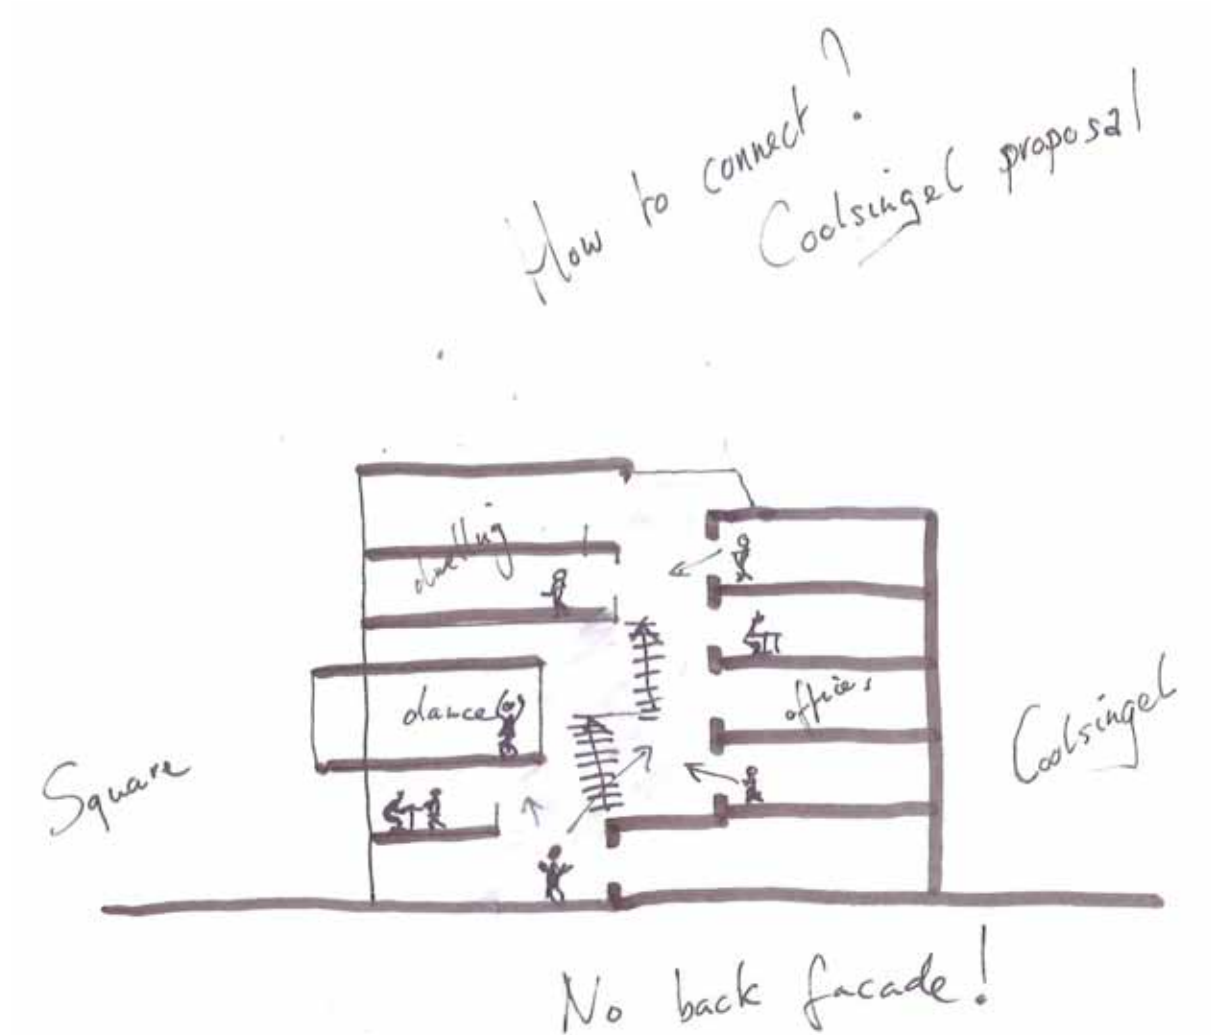 How to connect?
Coolsingel proposal
dwelling
dance
offices
Square
Coolsingel
No back facade!